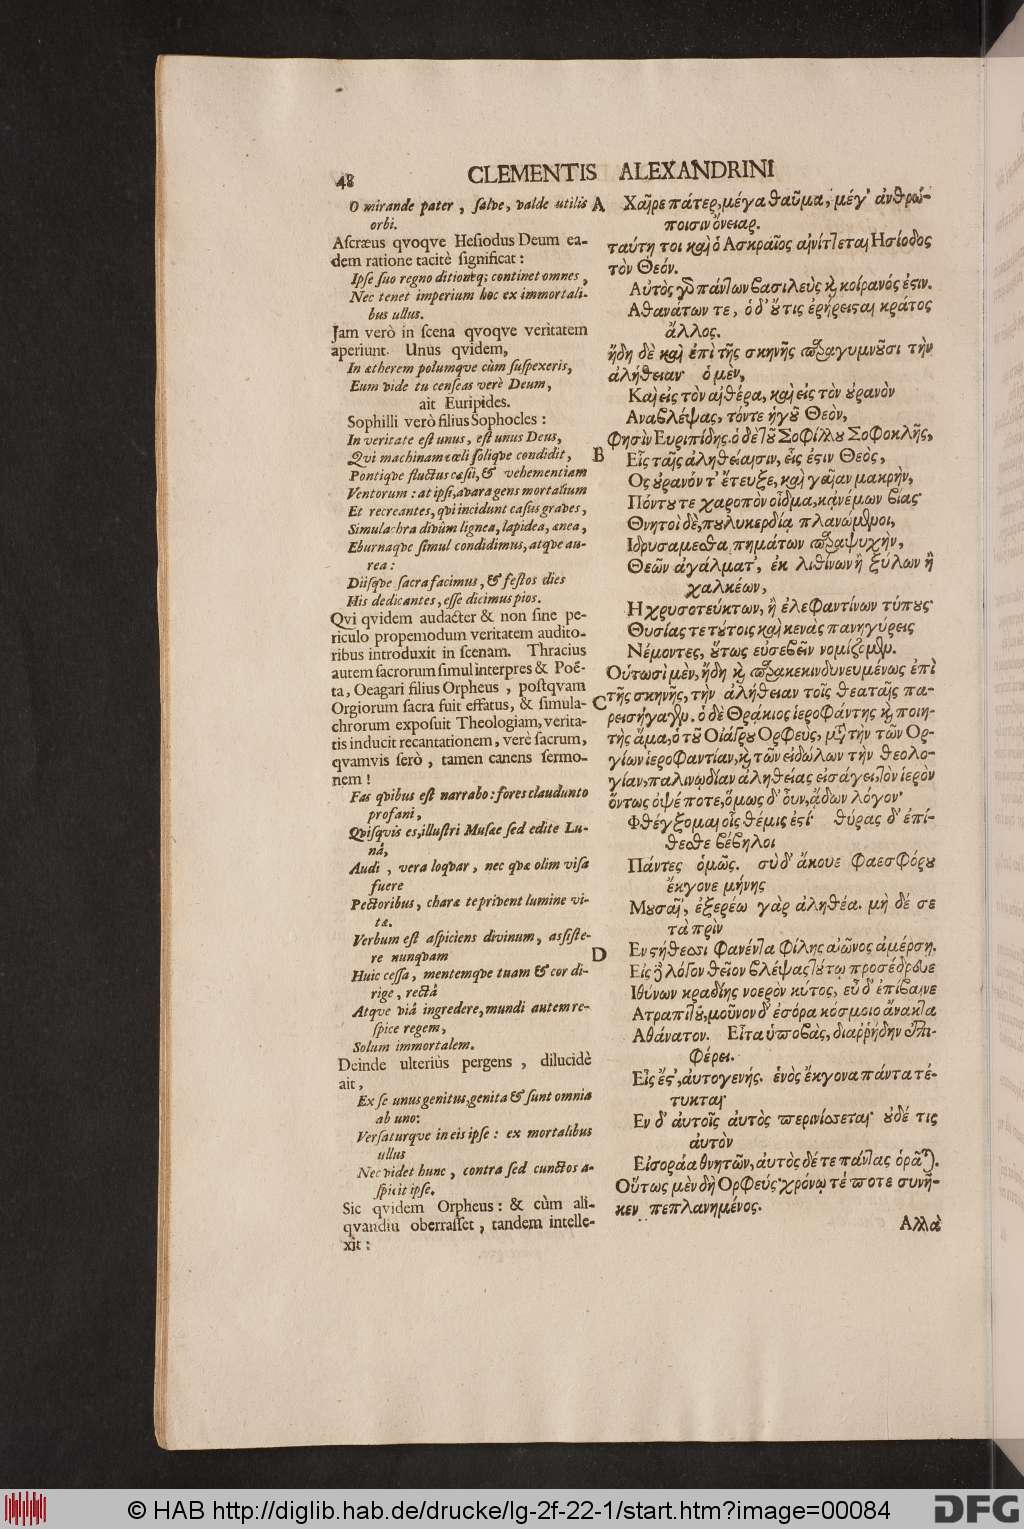 48
CLEMENTIS ALEXANDRINI
O mirande pater, salve, valde utilis
orbi.
Ascræus qvoqve Hesiodus Deum ea-
dem ratione tacitè significat:
Ipse suo regno ditioneq; continet omnes,
Nec tenet imperium hoc ex immortali-
bus ullus.
Jam verò in scena qvoqve veritatem
aperiunt. Unus qvidem,
In ætherem polumqve cùm suspexeris,
Eum vide tu censeas verè Deum,
ait Euripides.
Sophilli verò filius Sophocles:
In veritate est unus, est unus Deus,
Qvi machinam cœli soliqve condidit,
Pontiqve fluctus cæsii, & vehementiam
Ventorum: at ipsi, avara gens mortalium
Et recreantes, qvi incidunt casus graves,
Simulachra divûm lignea, lapidea, ænea,
Eburnaqve simul condidimus, atqve au-
rea:
Diisqve sacra facimus, & festos dies
His dedicantes, esse dicimus pios.
Qvi qvidem audacter & non sine pe-
riculo propemodum veritatem audito-
ribus introduxit in scenam. Thracius
autem sacrorum simul interpres & Poë-
ta, Oeagari filius Orpheus, postqvam
Orgiorum sacra fuit effatus, & simula-
chrorum exposuit Theologiam, verita-
tis inducit recantationem, verè sacrum,
qvamvis serò, tamen canens sermo-
nem!
Fas qvibus est narrabo: fores claudunto
profani,
Qvisqvis es, illustri Musæe sed edite Lu-
nâ,
Audi, vera loqvar, nec qvæ olim visa
fuere
Pectoribus, charæ te privent lumine vi-
tæ.
Verbum est aspiciens divinum, assiste-
re nunqvam
Huic cessa, mentemqve tuam & cor di-
rige, rectâ
Atqve viâ ingredere, mundi autem re-
spice regem,
Solum immortalem.
Deinde ulteriùs pergens, dilucidè
ait,
Ex se unus genitus, genita & sunt omnia
ab uno:
Versaturqve in eis ipse: ex mortalibus
ullus
Nec videt hunc, contra sed cunctos a-
spicit ipse.
Sic qvidem Orpheus: & cùm ali-
qvandiu oberrasset, tandem intelle-
xit:
A
B
C
D
Χαῖρε πάτερ, μέγα θαῦμα, μέγ' ἀνθρώ-
ποισιν ὄνειαρ.
ταύτη τοι καὶ ὁ Ἀσκραῖος αἰνίττεται Ησίοδος
τὸν Θεόν.
Αὐτὸς γὸ πάντων βασιλεὺς κ κοίρανός ἐστιν.
Αθανάτων τε, ὁ δ' οὔτις ἐρήρεισται κράτος
ἄλλος.
ἤδη δὲ καὶ ἐπὶ τῆς σκηνῆς παραγυμνοῦσι τὴν
ἀλήθειαν ὁ μὲν,
Καὶ εἰς τὸν αἰθέρα, καὶ εἰς τὸν οὐρανὸν
Αναβλέψας, τόν τε ἡγοῦ Θεὸν,
Φησὶν Ευριπίδης. ὁ δὲ τοῦ Σοφίλλου Σοφοκλῆς,
Εἷς ταῖς ἀληθείαισιν, εἷς ἐστιν Θεὸς,
Ος οὐρανόν τ' ἔτευξε, καὶ γαῖαν μακρὴν,
Πόντου τε χαροπὸν οἶδμα, κἀνέμων βίας
Θνητοὶ δὲ, πουλυκερδία πλανώμενοι,
Ιδρυσαμεσθα πημάτων παραψυχὴν,
Θεῶν ἀγάλματ', ἐκ λιθίνων ἢ ξύλων ἢ
χαλκέων,
Η χρυσοτεύκτων, ἢ ἐλεφαντίνων τύπους
Θυσίας τε τούτοις καὶ κενὰς πανηγύρεις
Νέμοντες, οὕτως εὐσεβεῖν νομίζομεν.
Οὑτωσὶ μὲν, ἤδη κ παρακεκινδυνευμένως ἐπὶ
τῆς σκηνῆς, τὴν ἀλήθειαν τοῖς θεαταῖς πα-
ρεισήγαγεν. ὁ δὲ Θράκιος ἱεροφάντης κ ποιη-
τὴς ἅμα, ὁ τοῦ Οἰάγρου Ορφεὺς, μετὰ τὴν τῶν Ορ-
γίων ἱεροφαντίαν, κ τῶν εἰδώλων τὴν θεολο-
γίαν, παλινῳδίαν ἀληθείας εἰσάγει, τὸν ἱερὸν
ὄντως ὀψέ ποτε, ὅμως δ' οὖν, ᾄδων λόγον·
Φθέγξομαι οἷς θέμις ἐστί· θύρας δ' ἐπί-
θεσθε βέβηλοι
Πάντες ὁμῶς. σὺ δ' ἄκουε φαεσφόρου
ἔκγονε μήνης
Μουσαῖ', ἐξερέω γὰρ ἀληθέα. μὴ δέ σε
τὰ πρὶν
Εν στήθεσσι φανέντα φίλης αἰῶνος ἀμέρσῃ.
Εἰς δὲ λόγον θεῖον βλέψας τούτῳ προσέδρευε
Ιθύνων κραδίης νοερὸν κύτος, εὖ δ' ἐπίβαινε
Ατραπιτοῦ, μοῦνον δ' ἐσόρα κόσμοιο ἄνακτα
Αθάνατον. Εἶτα ὑποβὰς, διαρρήδην ἐπι-
φέρει.
Εἷς ἔστ', αὐτογενής. ἑνὸς ἔκγονα πάντα τέ-
τυκται·
Εν δ' αὐτοῖς αὐτὸς περινίσσεται· οὐδέ τις
αὐτὸν
Εἰσοράᾳ θνητῶν, αὐτὸς δέ τε πάντας ὁρᾶται.
Οὕτως μὲν δὴ Ορφεύς· χρόνῳ τέ ποτε συνῆ-
κεν πεπλανημένος.
Αλλὰ
© HAB http://diglib.hab.de/drucke/lg-2f-22-1/start.htm?image=00084
DFG